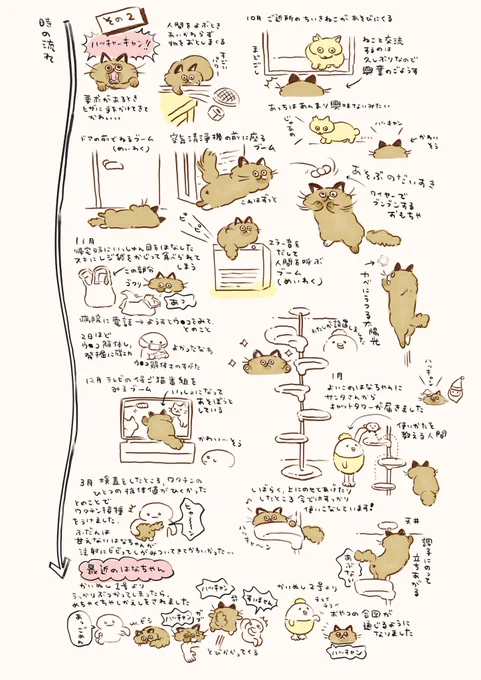 時の流れ
その2
ハッキャーキャン!!
要求があるとき
ヒザに手をかけてきて
かわいい
人間をよぶとき
あいかわらず
物をおとしまくる
10月 ご近所のちいきねこがあそびにくる
まどごし
ねこと交流
するのは
久しぶりなので
興奮のごようす
あっちはあんまり興味ないみたい
じゃあの
ハッキャン
かわい
そう
ドアの前でねるブーム
(めいわく)
空気清浄機の前に座る
ブーム
これはずっと
あそぶのだいすき
ワイヤーで
ブンブンする
おもちゃ
ピー
エラー音を
だして
人間を呼ぶ
ブーム
(めいわく)
カベにうつる太陽光
11月
帰宅時にいっしゅん目をはなした
スキにレジ袋をかじって食べられて
しまう
この部分
あっ
病院に電話→ようすとウ●コをみて
とのこと
2日ほど
ウ●コ解体し
発掘に成功
よかったなぁ
ウ●コ解体士のすがた
12月 テレビの保ご猫番組を
みるブーム
いっしょになって
あそぼうと
している
かわい…そう
1月
よいこのはなちゃんに
サンタさんから
キャットタワーが届きました
ハッキャン
使いかたを
教える人間
しばらく上にのせてあげたり
したところ今ではすっかり
使いこなしています!
天井
調子にのって
立ちあがる
あぶない
3月 検査をしたところ、ワクチンの
ひとつの抗体価がひくかった
とのことで
ワクチン接種
をうけました。
ふだんは
甘えないはなちゃんが
注射にビビってしがみついてきてかわいかった…
最近のはなちゃん
かいぬし1号より
うっかりぶつかってしまったら、
めちゃくちゃしかえしをされました
あ、ごめん
ビシ
ハッキャン
ガブ
ハッキャン
すいません
とびかかってくる
かいぬし2号より
チョイ
チョイ
おやつの合図が
通じるように
なりました
ハッキャン